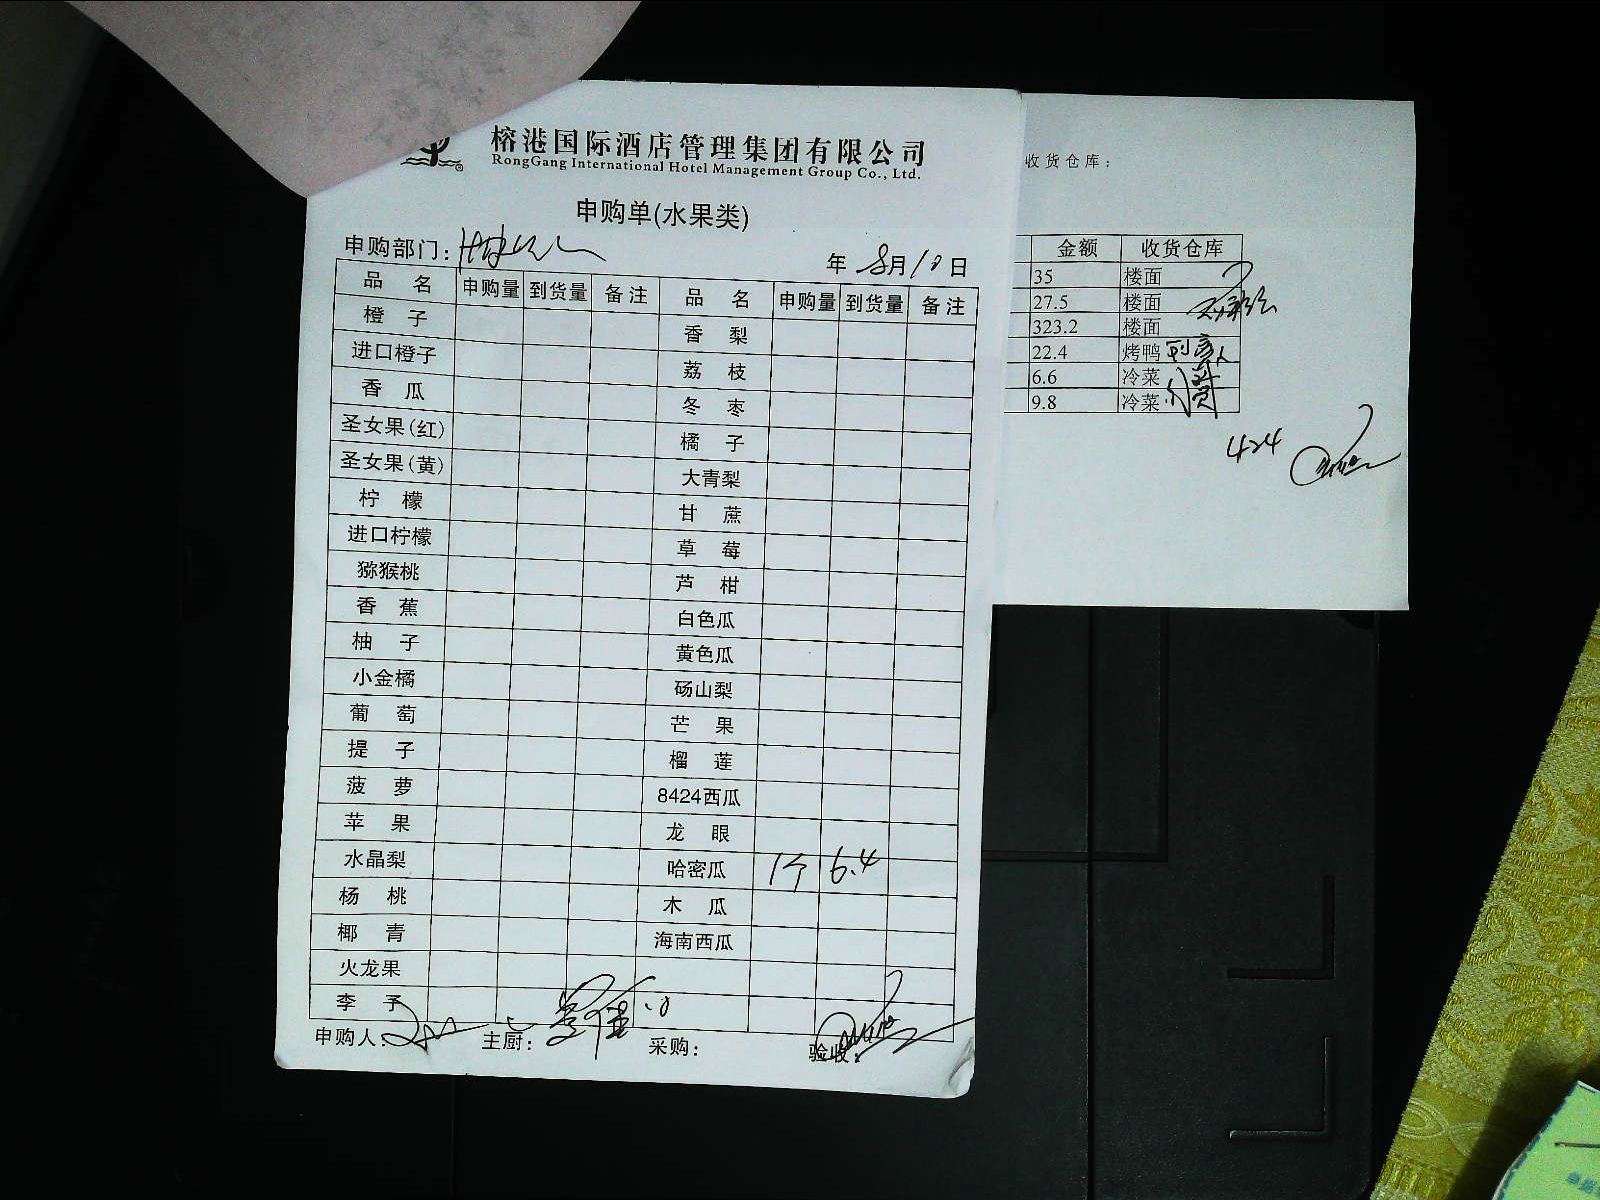 榕港国际酒店管理集团有限公司
RongGang International Hotel Management Group Co., Ltd.
申购单(水果类)
申购部门: 年 8月10日
品名 申购量 到货量 备注 品名 申购量 到货量 备注
橙子 香梨
进口橙子 荔枝
香瓜 冬枣
圣女果(红) 橘子
圣女果(黄) 大青梨
柠檬 甘蔗
进口柠檬 草莓
猕猴桃 芦柑
香蕉 白色瓜
柚子 黄色瓜
小金橘 砀山梨
葡萄 芒果
提子 榴莲
菠萝 8424西瓜
苹果 龙眼
水晶梨 哈密瓜 1个 6.4
杨桃 木瓜
椰青 海南西瓜
火龙果
李子
申购人: 主厨: 采购: 验收:
收货仓库:
金额 收货仓库
35 楼面
27.5 楼面
323.2 楼面
22.4 烤鸭
6.6 冷菜
9.8 冷菜
424